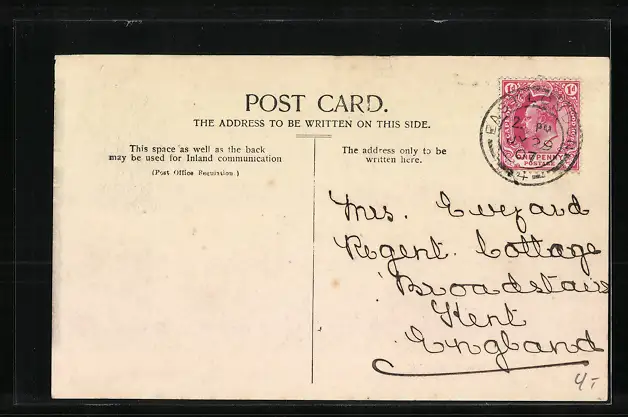 POST CARD.
THE ADDRESS TO BE WRITTEN ON THIS SIDE.
This space as well as the back
may be used for Inland communication
(Post Office Requisition.)
The address only to be
written here.
1d 1d
ONE PENNY
POSTAGE
EAST
2 PM
26
07
4
Mrs. Everard
Regent Cottage
Broadstairs
Kent
England
4,-